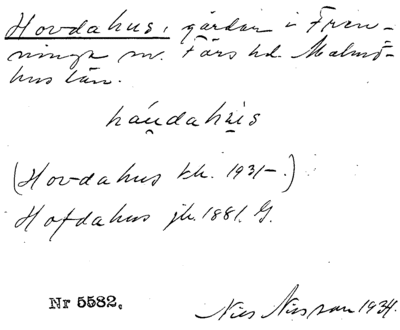 Hovdahus, gårdar i Fren-
ninge sn. Färs hd. Malmö-
hus län.
håu̯dahu̯s
(Hovdahus tk. 1931-.)
Hofdahus jb. 1881. G.
Nr 5582.
Nils Nilsson 1934.